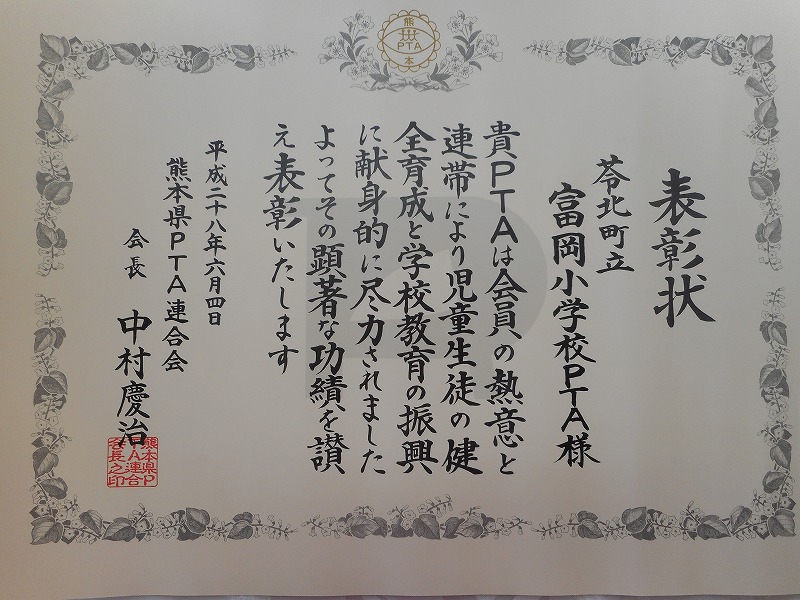 熊
PTA
本
表彰状
苓北町立
富岡小学校PTA様
貴PTAは会員の熱意と
連帯により児童生徒の健
全育成と学校教育の振興
に献身的に尽力されました
よってその顕著な功績を讃
え表彰いたします
平成二十八年六月四日
熊本県PTA連合会
会長 中村慶治
熊本県P
TA連合
会長之印